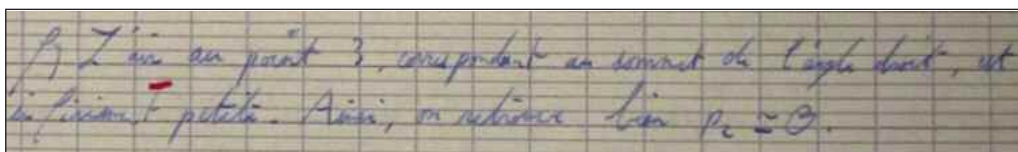 β) L'air au point 3, correspondant au sommet de l'angle droit, est
infiniment petite. Ainsi, on retrouve bien p₂ ≃ 0.